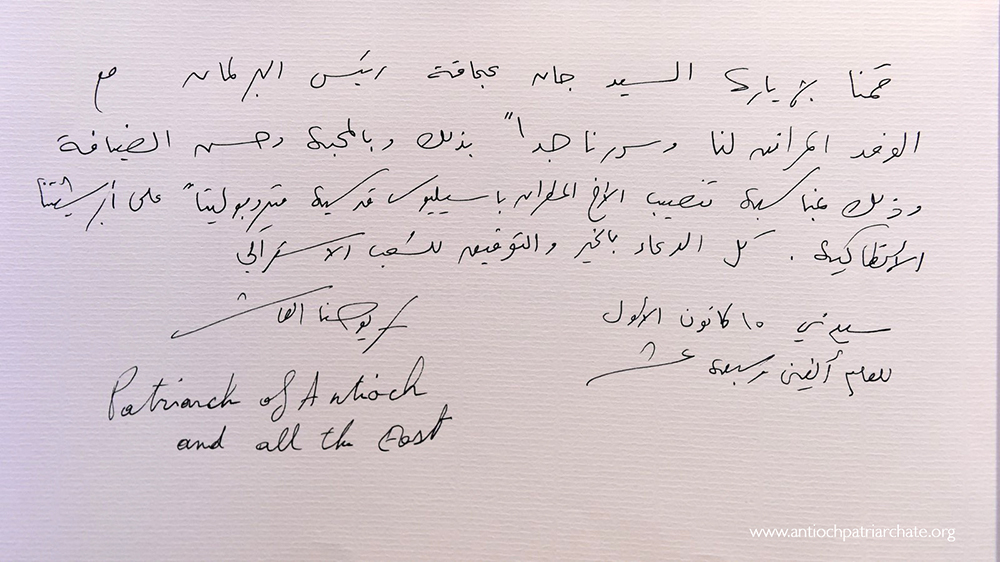 قمنا بزيارة السيد جان عجاقة رئيس البرلمان مع
الوفد المرافق لنا وسررنا جداً بذلك وبالمحبة وحسن الضيافة
وذلك بمناسبة تنصيب الأخ المطران باسيليوس قدسية متروبوليتاً على أبرشيتنا
الأنطاكية. كل الدعاء بالخير والتوفيق للشعب الاسترالي
سيدني ١٠ كانون الأول
للعام ألفين وسبعة عشر
يوحنا العاشر
Patriarch of Antioch
and all the East
www.antiochpatriarchate.org